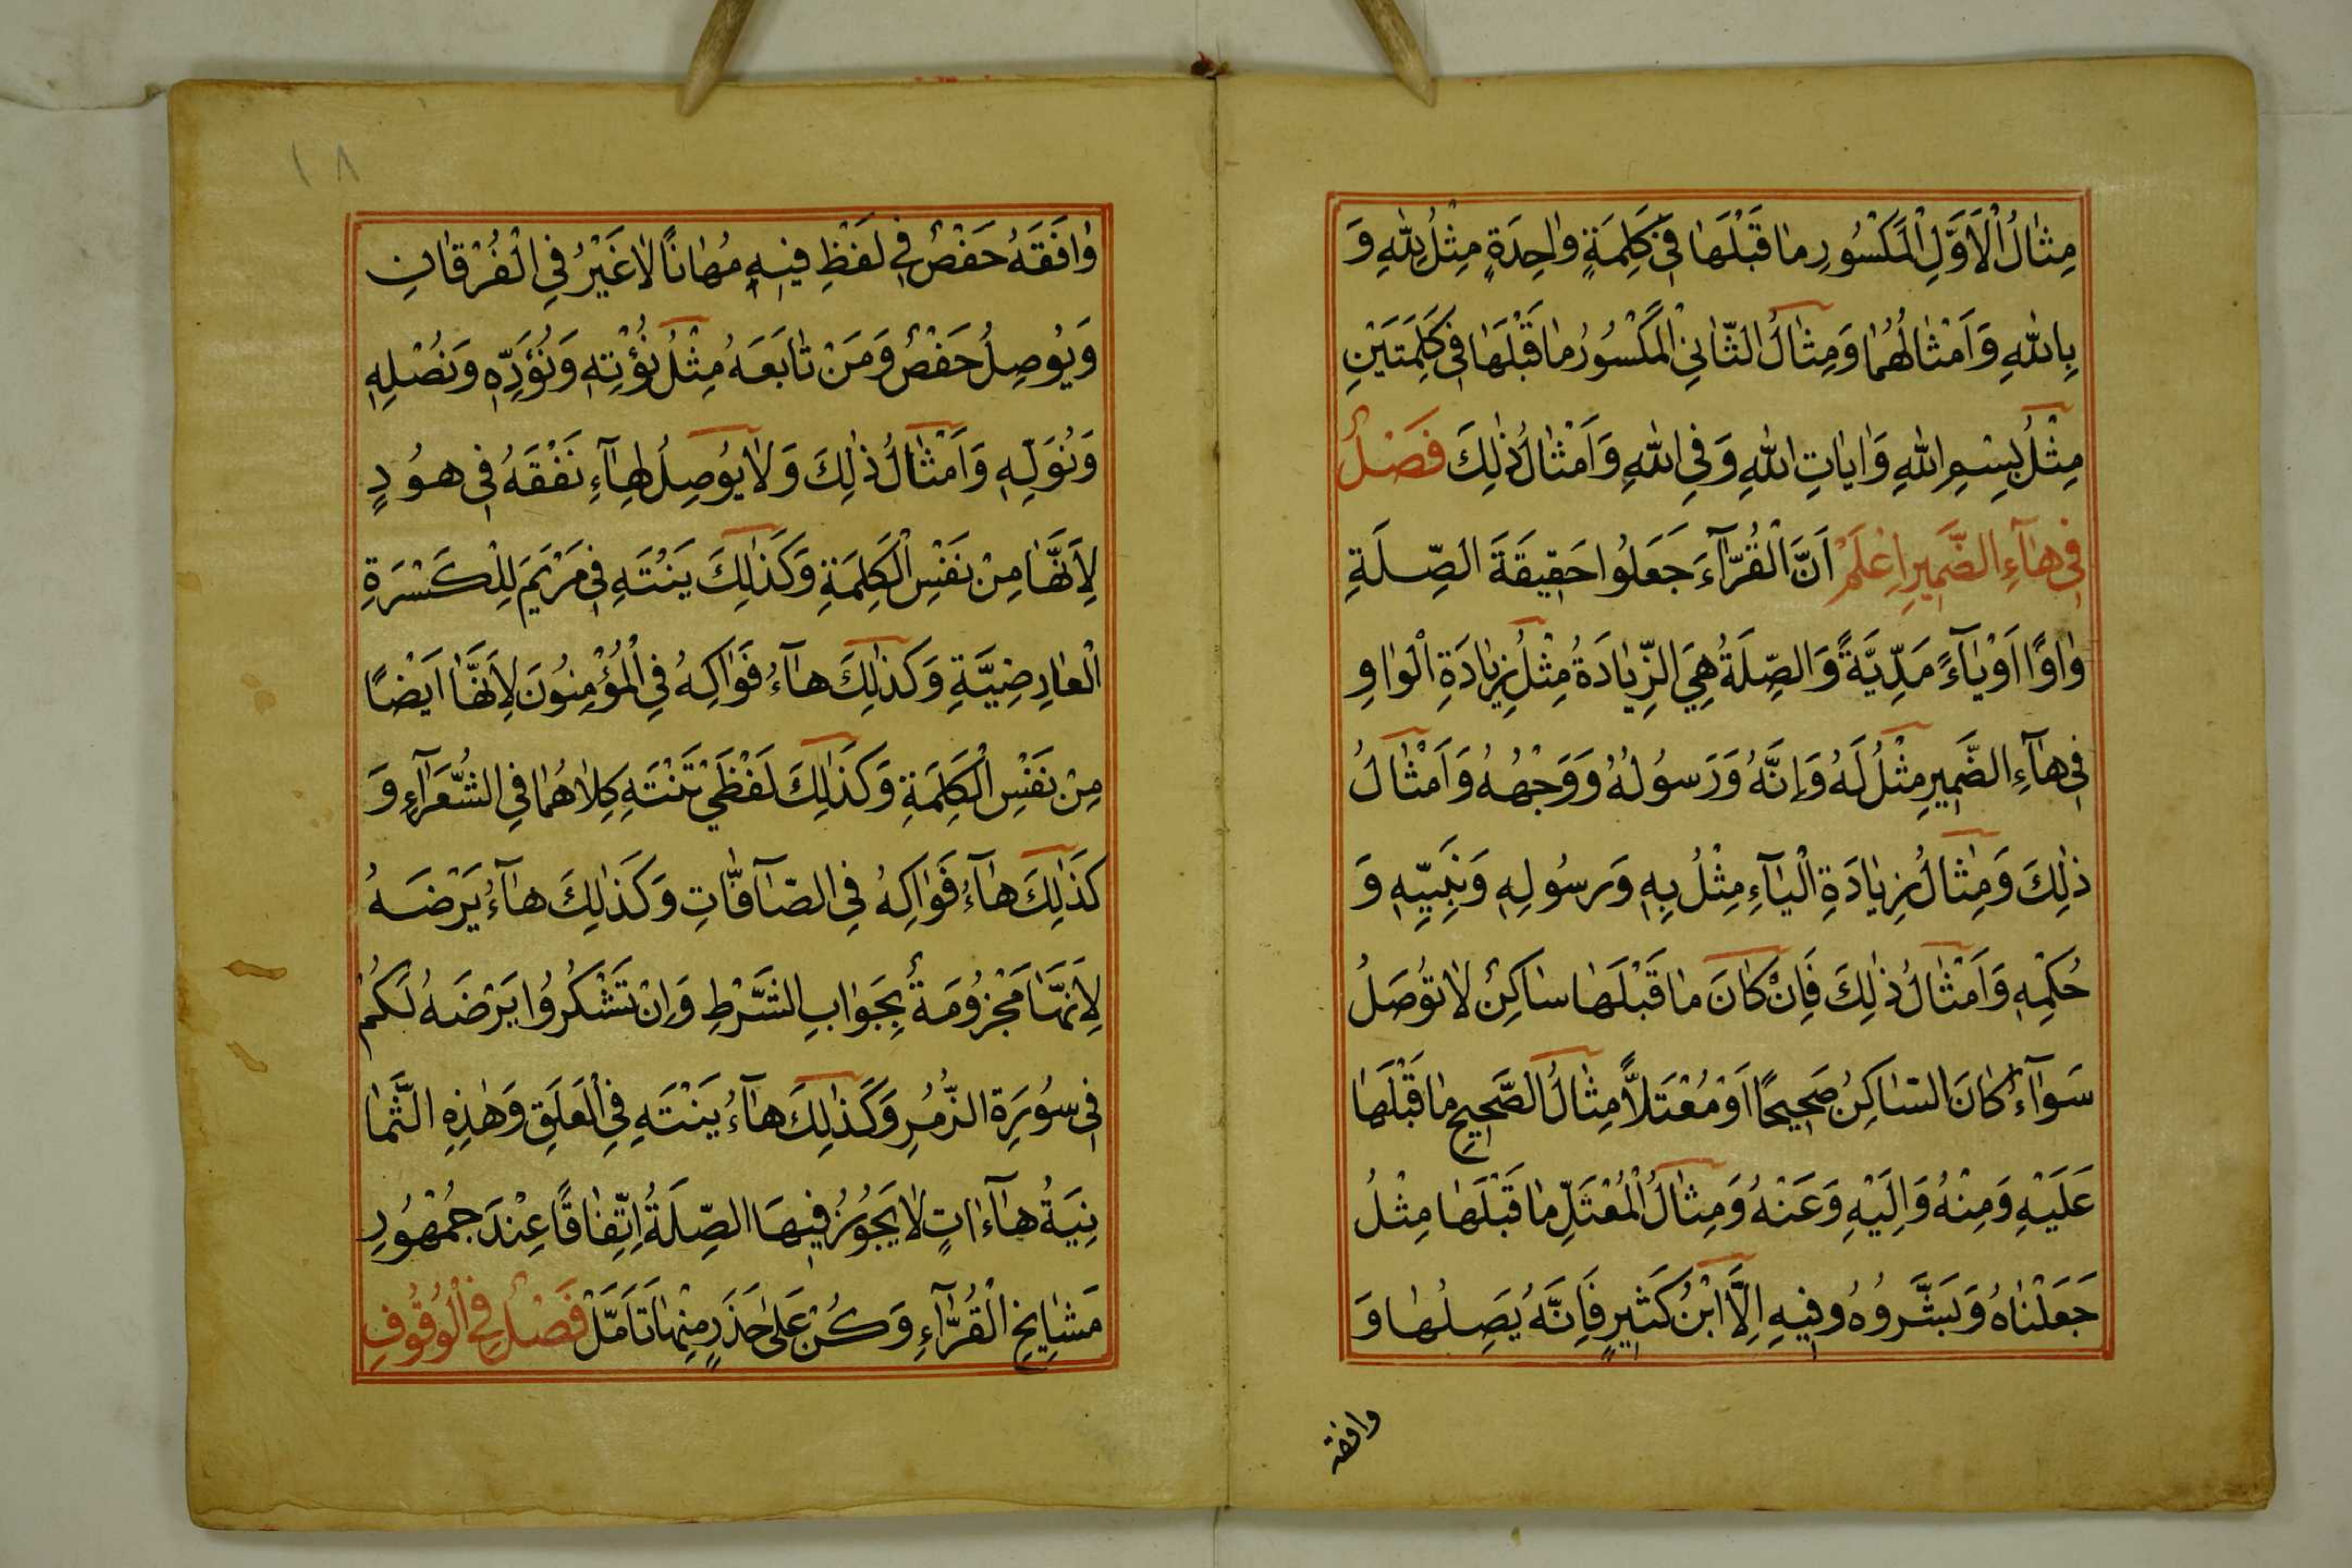 مِثَالُ الْاَوَّلِ الْمَكْسُورِ مَا قَبْلَهَا فِي كَلِمَةٍ وَاحِدَةٍ مِثْلُ لِلّٰهِ وَ
بِاللّٰهِ وَاَمْثَالُهُمَا وَمِثَالُ الثَّانِي الْمَكْسُورُ مَا قَبْلَهَا فِي كَلِمَتَيْنِ
مِثْلُ بِسْمِ اللّٰهِ وَاٰيَاتِ اللّٰهِ وَفِي اللّٰهِ وَاَمْثَالُ ذٰلِكَ فَصْلٌ
فِي هَآءِ الضَّمِيرِ اِعْلَمْ اَنَّ الْقُرَّآءَ جَعَلُوا حَقِيقَةَ الصِّلَةِ
وَاوًا اَوْ يَآءً مَدِّيَّةً وَالصِّلَةُ هِيَ الزِّيَادَةُ مِثْلُ زِيَادَةِ الْوَاوِ
فِي هَآءِ الضَّمِيرِ مِثْلُ لَهُ وَاِنَّهُ وَرَسُولُهُ وَوَجْهُهُ وَاَمْثَالُ
ذٰلِكَ وَمِثَالُ زِيَادَةِ الْيَآءِ مِثْلُ بِهِ وَرَسُولِهِ وَنَبِيِّهِ وَ
حُكْمِهِ وَاَمْثَالُ ذٰلِكَ فَاِنْ كَانَ مَا قَبْلَهَا سَاكِنٌ لَا تُوصَلُ
سَوَآءٌ كَانَ السَّاكِنُ صَحِيحًا اَوْ مُعْتَلًّا مِثَالُ الصَّحِيحِ مَا قَبْلَهَا
عَلَيْهِ وَمِنْهُ وَاِلَيْهِ وَعَنْهُ وَمِثَالُ الْمُعْتَلِّ مَا قَبْلَهَا مِثْلُ
جَعَلْنَاهُ وَبَشَّرُوهُ وفِيهِ اِلَّا ابْنُ كَثِيرٍ فَاِنَّهُ يَصِلُهَا وَ
وافقه
١٨
وَافَقَهُ حَفْصٌ فِي لَفْظِ فِيهِ مُهَانًا لَا غَيْرُ فِي الْفُرْقَانِ
وَيُوصِلُ حَفْصٌ وَمَنْ تَابَعَهُ مِثْلُ نُؤْتِهِ وَنُؤَدِّهِ وَنُصْلِهِ
وَنُوَلِّهِ وَاَمْثَالُ ذٰلِكَ وَلَا يُوصِلُ هَآءِ نَفْقَهُ فِي هُودٍ
لِاَنَّهَا مِنْ نَفْسِ الْكَلِمَةِ وَكَذَالِكَ يَنْتَهِ فِي مَرْيَمَ لِلْكَسْرَةِ
الْعَارِضِيَّةِ وَكَذَالِكَ هَآءُ فَوَاكِهُ فِي الْمُؤْمِنُونَ لِاَنَّهَا اَيْضًا
مِنْ نَفْسِ الْكَلِمَةِ وَكَذَالِكَ لَفْظَيْ تَنْتَهِ كِلَاهُمَا فِي الشُّعَرَآءِ وَ
كَذَالِكَ هَآءُ فَوَاكِهُ فِي الصَّآفَّاتِ وَكَذَالِكَ هَآءُ يَرْضَهُ
لِاَنَّهَا مَجْزُومَةٌ بِجَوَابِ الشَّرْطِ وَاِنْ تَشْكُرُوا يَرْضَهُ لَكُمْ
فِي سُورَةِ الزُّمَرِ وَكَذَالِكَ هَآءُ يَنْتَهِ فِي الْعَلَقِ وَهٰذِهِ الثَّمَا
نِيَةُ هَآءَاتٍ لَا يَجُوزُ فِيهَا الصِّلَةُ اِتِّفَاقًا عِنْدَ جُمْهُورِ
مَشَايِخِ الْقُرَّآءِ وَكُنْ عَلٰى حَذَرٍ مِنْهَا تَاَمَّلْ فَصْلٌ فِي الْوُقُوفِ